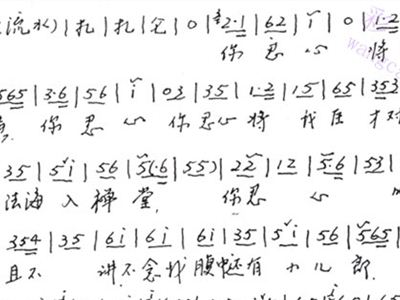 流水) | 扎 | 扎 | 仓 | 0 | 2·1 | 62 | i | 0 | 1·2
你 忍 心 将
565 | 3·6 | 56 | i | 03 | 35 | 1·2 | 15 | 65 | 353
你 忍 心 你 忍 心 将 我 在
35 | 5i | 56 | 5(6 | 55) | 22 | 12 | 5·6 | 53 |
法海 入 禅 堂 你 忍 心
354 | 35 | 6i | 6i | 6i | 35 | 5i | 56 | 565 |
且不 讲 不 念 我 腹 中 还 有 小 儿 郎